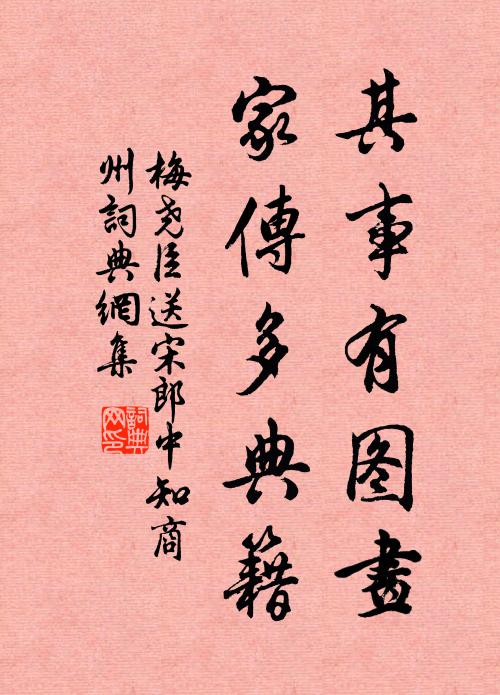 其事有图畫
家傳多典籍
梅尧臣送宋郎中知商
州詞典網集
詞典网印